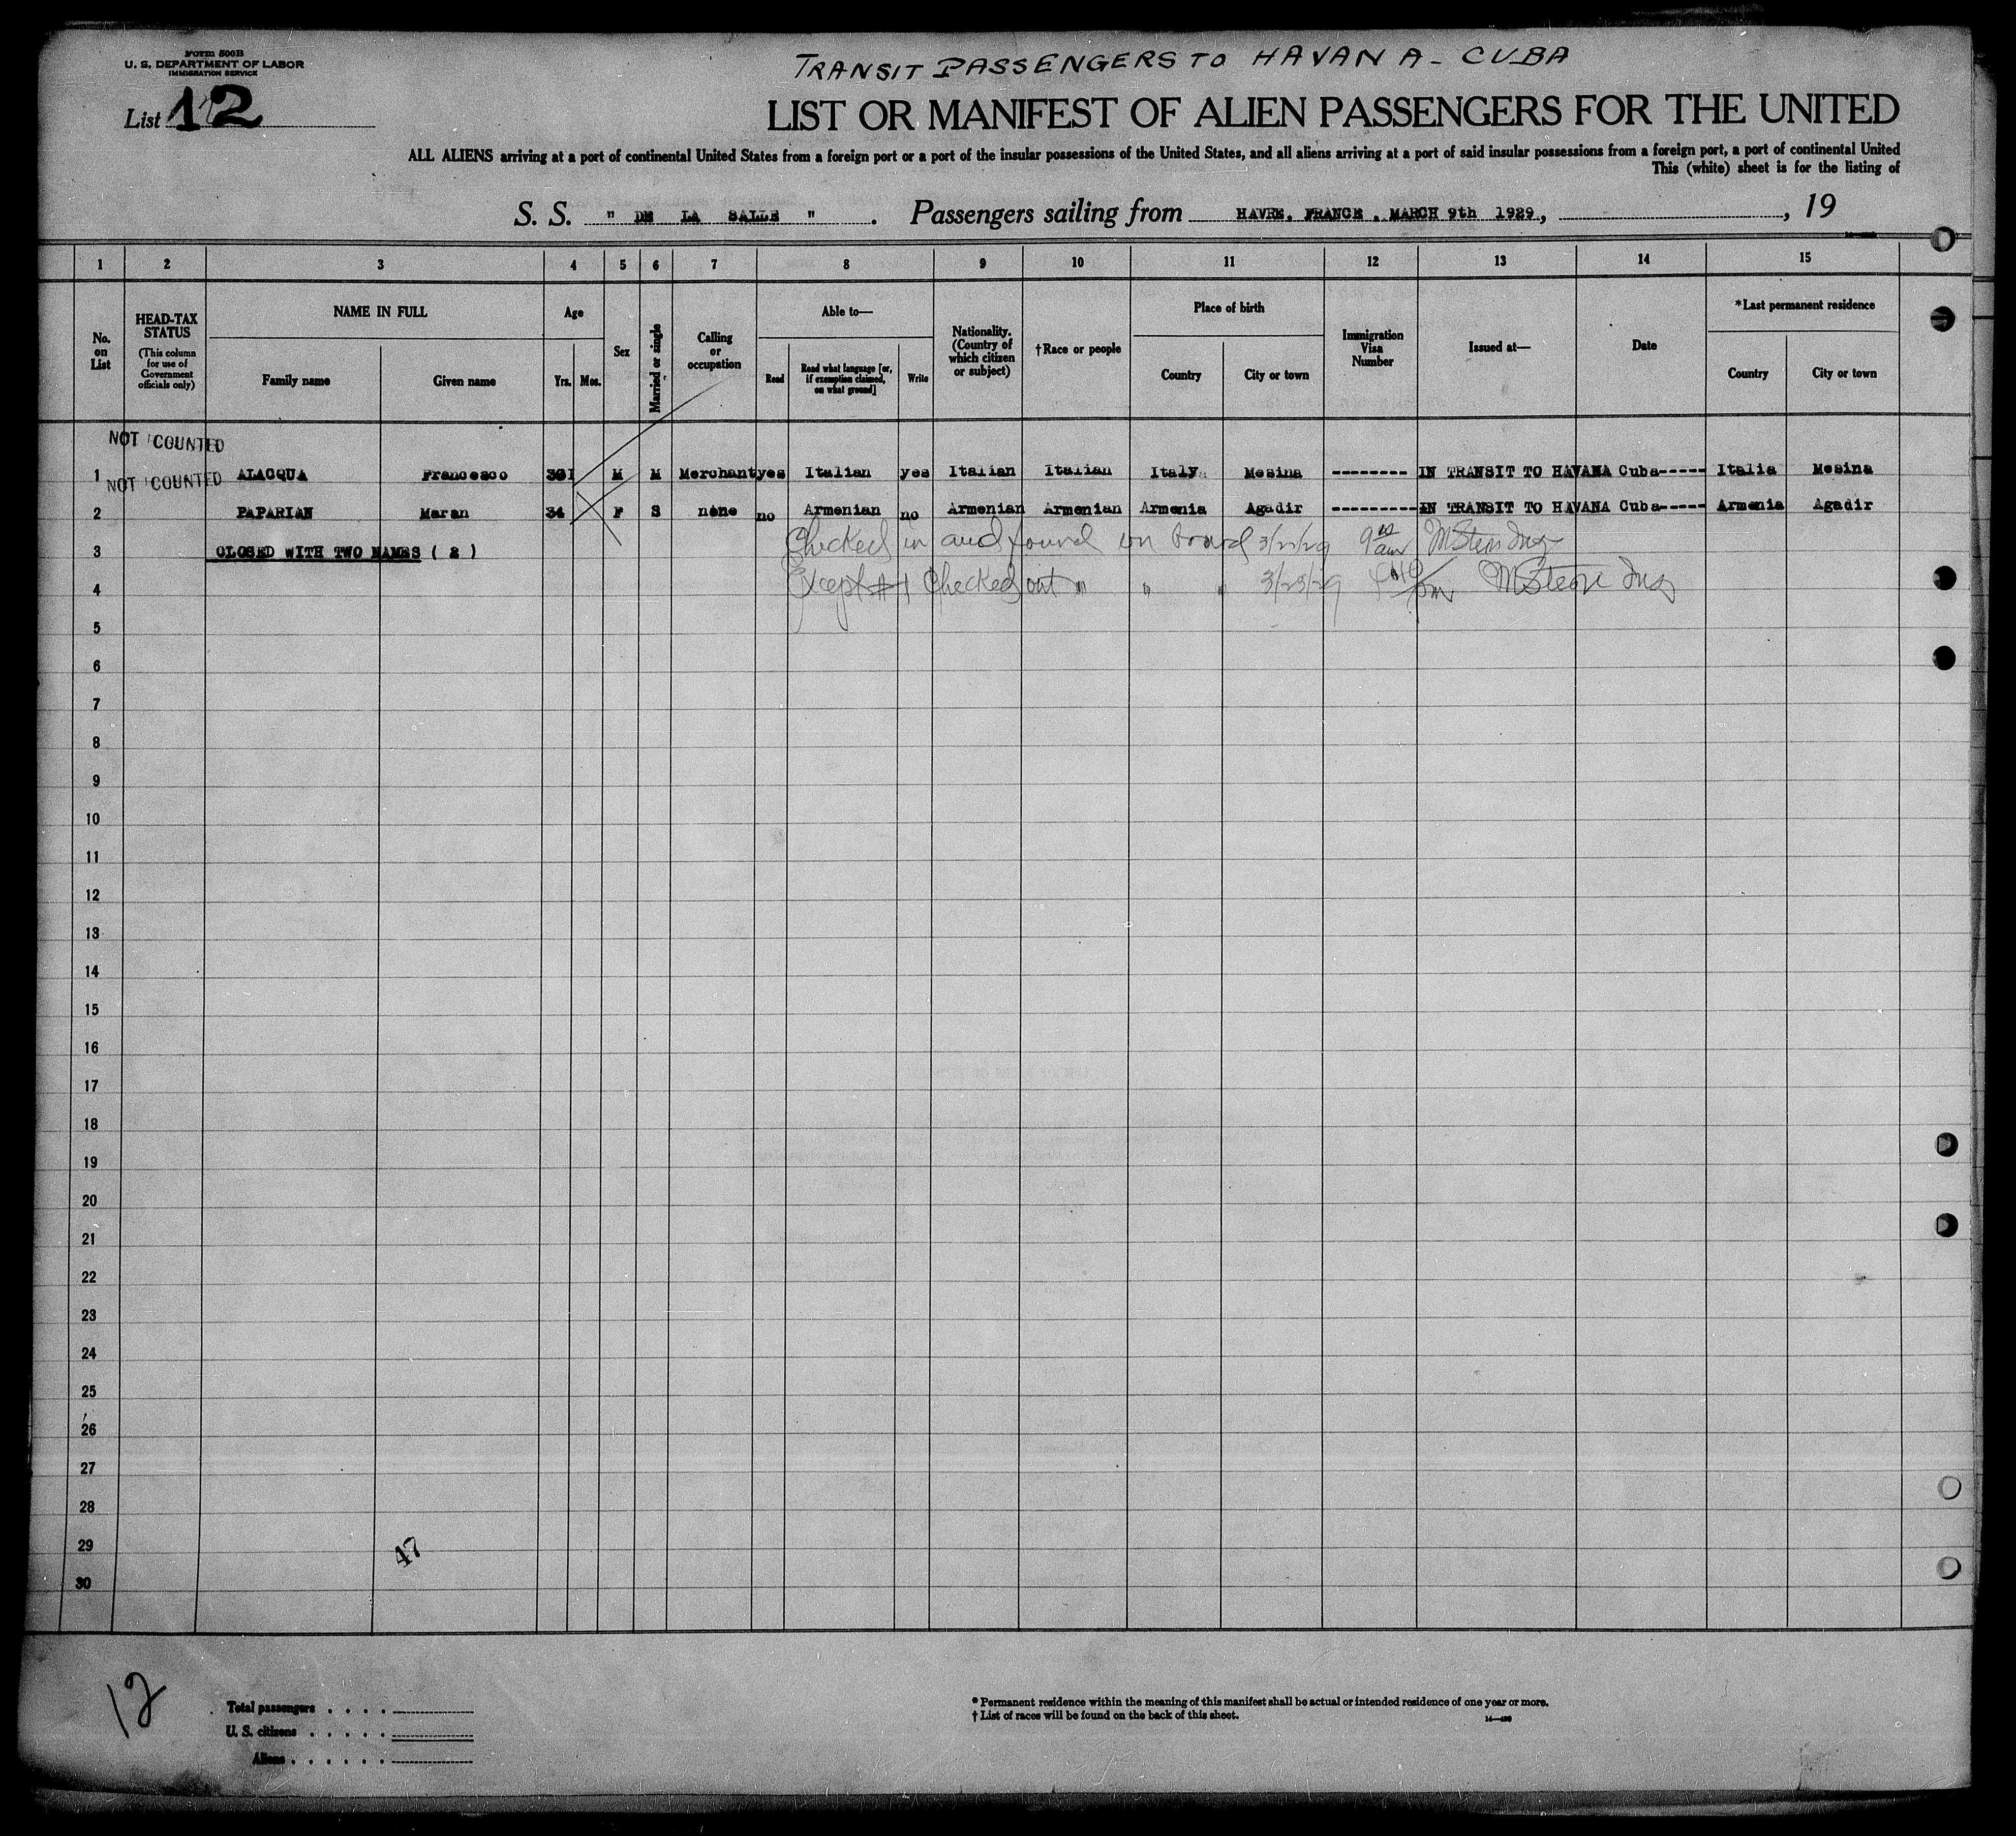 Form 500B
U. S. DEPARTMENT OF LABOR
IMMIGRATION SERVICE
TRANSIT PASSENGERS TO HAVANA - CUBA
List 12
LIST OR MANIFEST OF ALIEN PASSENGERS FOR THE UNITED
ALL ALIENS arriving at a port of continental United States from a foreign port or a port of the insular possessions of the United States, and all aliens arriving at a port of said insular possessions from a foreign port, a port of continental United
This (white) sheet is for the listing of
S. S. " DE LA SALLE " . Passengers sailing from HAVRE. FRANCE . MARCH 9th 1929, , 19
1 2 3 4 5 6 7 8 9 10 11 12 13 14 15
No. on List
HEAD-TAX STATUS
(This column for use of Government officials only)
NAME IN FULL
Family name Given name
Age
Yrs. Mos.
Sex
Married or single
Calling or occupation
Able to—
Read Read what language [or, if exemption claimed, on what ground] Write
Nationality. (Country of which citizen or subject)
†Race or people
Place of birth
Country City or town
Immigration Visa Number
Issued at—
Date
*Last permanent residence
Country City or town
NOT COUNTED
1 ALACQUA Francesco M M Merchant yes Italian yes Italian Italian Italy Mesina -------- IN TRANSIT TO HAVANA Cuba----- Italia Mesina
NOT COUNTED
2 PAPARIAN Maran 34 F S none no Armenian no Armenian Armenian Armenia Agadir ---------- IN TRANSIT TO HAVANA Cuba----- Armenia Agadir
3 CLOSED WITH TWO NAMES ( 2 ) Checked in and found on board 9 am
4 Except #1 Checked out " " " 3/23/29 pm
5
6
7
8
9
10
11
12
13
14
15
16
17
18
19
20
21
22
23
24
25
26
27
28
29
47
30
12
Total passengers . . . .
U. S. citizens . . . . .
Aliens . . . . . .
* Permanent residence within the meaning of this manifest shall be actual or intended residence of one year or more.
† List of races will be found on the back of this sheet.